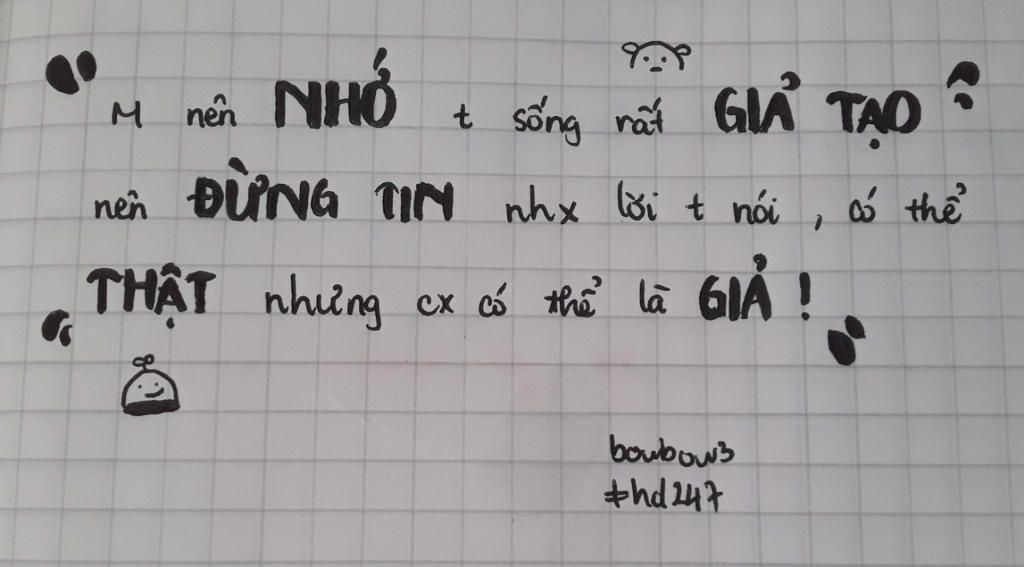 M nên NHỚ t sống rất GIẢ TẠO
nên ĐỪNG TIN nhx lời t nói , có thể
THẬT nhưng cx có thể là GIẢ !
boubow3
#hd247